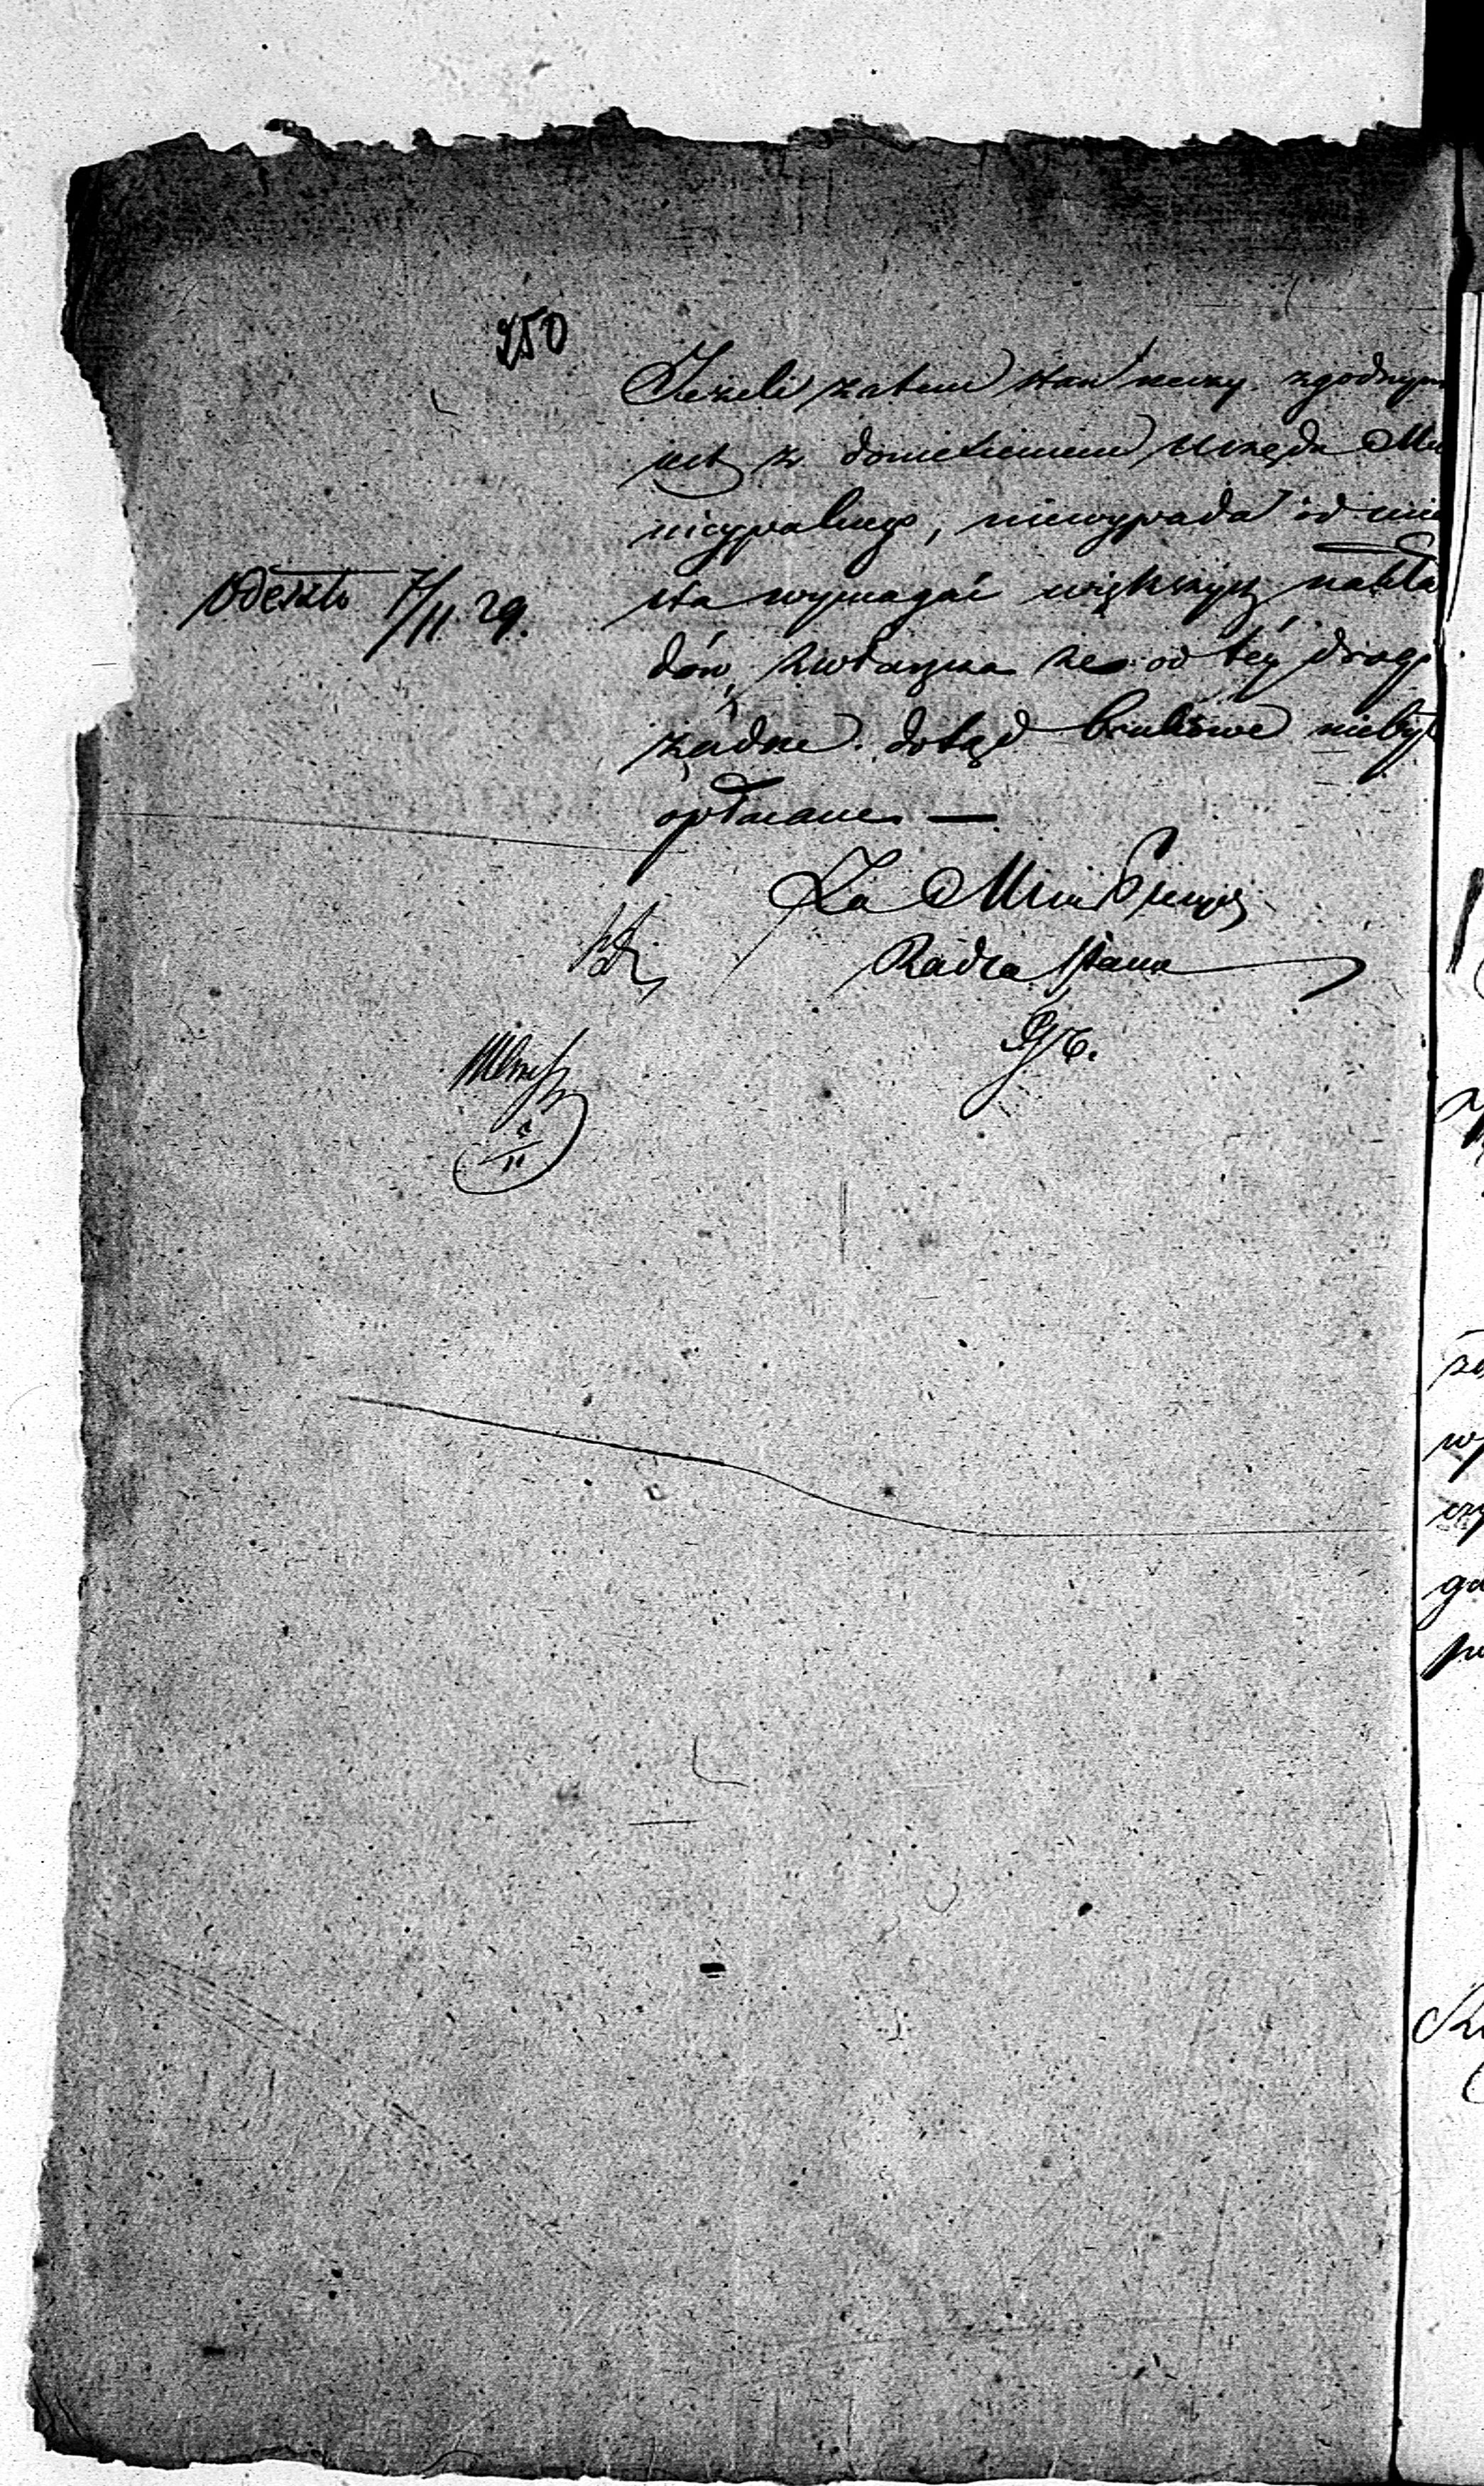 250
Jeżeli zatem stan rzeczy zgodnym
jest z doniesieniem Urzędu Mu
nicypalnego, niewypada od mia
sta wymagać większych nakła
dów, zwłaszcza że od téy drogi
żadne dotąd brukowe niebył
opłacane —
Odeszło 7/11 29.
Za Mini Prezy
Radca Stanu